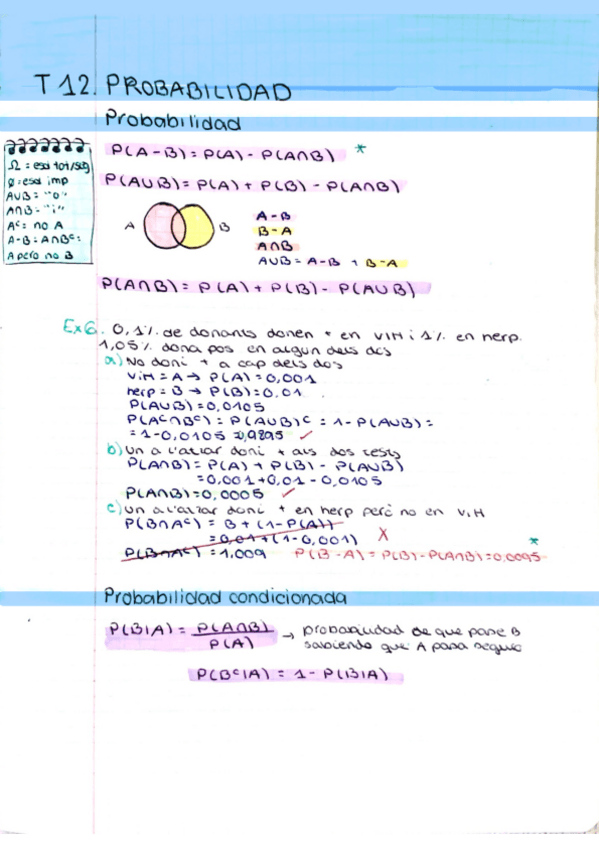 T 12. PROBABILIDAD
Probabilidad
Ω = esd tot/seg
Ø = esd imp
A∪B = "o"
A∩B = "i"
Aᶜ = no A
A-B = A∩Bᶜ =
A pero no B
P(A-B) = P(A) - P(A∩B) *
P(A∪B) = P(A) + P(B) - P(A∩B)
A B
A-B
B-A
A∩B
A∪B = A-B + B-A
P(A∩B) = P(A) + P(B) - P(A∪B)
Ex 6. 0,1% de donants donen + en VIH i 1% en herp.
1,05% dona pos en algun dels dos
a) No doni + a cap dels dos
VIH = A → P(A) = 0,001
herp = B → P(B) = 0,01
P(A∪B) = 0,0105
P(Aᶜ∩Bᶜ) = P(A∪B)ᶜ = 1 - P(A∪B) =
= 1 - 0,0105 = 0,9895 ✓
b) Un a l'atzar doni + als dos tests
P(A∩B) = P(A) + P(B) - P(A∪B)
= 0,001 + 0,01 - 0,0105
P(A∩B) = 0,0005 ✓
c) Un a l'atzar doni + en herp però no en VIH
P(B∩Aᶜ) = B + (1-P(A))
= 0,01 + (1-0,001) X
P(B∩Aᶜ) = 1,009 P(B-A) = P(B) - P(A∩B) = 0,0095 *
Probabilidad condicionada
P(B|A) = P(A∩B) / P(A) → probabilidad de que pase B
sabiendo que A pasa seguro
P(Bᶜ|A) = 1 - P(B|A)